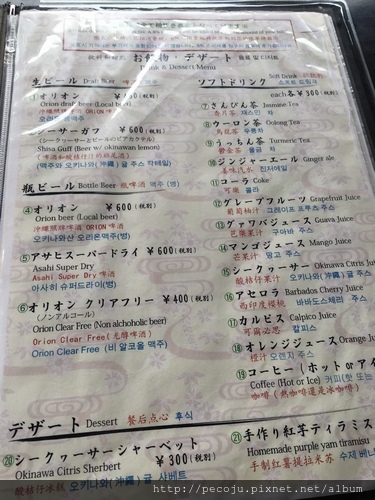 お飲物・デザート
Drink & Dessert Menu
生ビール Draft Beer
① オリオン
Orion draft beer (Local beer)
② シーサーガフ ￥600(税別)
(シークヮーサーとビールのビアカクテル)
Shisa Guff (Beer w/okinawan lemon)
瓶ビール Bottle Beer 瓶啤酒 맥주 (병)
④ オリオン ￥600(税別)
Orion beer (Local beer)
沖繩品牌啤酒 ORION 啤酒
오키나와산 오리온맥주(병)
⑤ アサヒスーパードライ ￥600(税別)
Asahi Super Dry
Asahi Super Dry 啤酒
아사히 슈퍼드라이(병)
⑥ オリオン クリアフリー ￥400(税別)
(ノンアルコール)
Orion Clear Free (Non alchoholic beer)
Orion Clear Free (无醇啤酒)
Orion Clear Free (비 알코올 맥주)
ソフトドリンク Soft Drink
소프트 드링크
each各￥300(税別)
⑦ さんぴん茶 Jasmine Tea
香片茶 재스민 차
⑧ ウーロン茶 Oolong Tea
乌龙茶 우롱차
⑨ うっちん茶 Turmeric Tea
鬱金茶 울금 차
⑩ ジンジャーエール Ginger ale
姜味汽水 진저에일
⑪ コーラ Coke
可樂 콜라
⑫ グレープフルーツ Grapefruit Juice
葡萄柚汁 그레이프 프루츠 주스
⑬ グァバジュース Guava Juice
芭樂果汁 구아바 주스
⑭ マンゴジュース Mango Juice
芒果汁 망고 주스
⑮ シークヮーサー Okinawa Citrus Jui
酸桔仔果汁 오키나와(沖縄) 귤 주스
⑯ アセロラ Barbados Cherry Juice
西印度櫻桃 바바도스체리 주스
⑰ カルピス Calpico Juice
可爾必思 칼피스
⑱ オレンジジュース Orange Jui
橙汁 오렌지 주스
⑲ コーヒー (ホット or アイ
Coffee (Hot or Ice) 커피(핫 또는
咖啡 (熱咖啡還是冰咖啡)
デザート Dessert 餐后点心 후식
⑳ シークヮーサーシャーベット
￥300(税別)
Okinawa Citris Sherbert
酸桔仔冰糕 오키나와(沖縄) 귤 샤베트
㉑ 手作り紅芋ティラミス
Homemade purple yam tiramisu
手制红薯提拉米苏 수제 베니
http://pecoju.pixnet.net/album